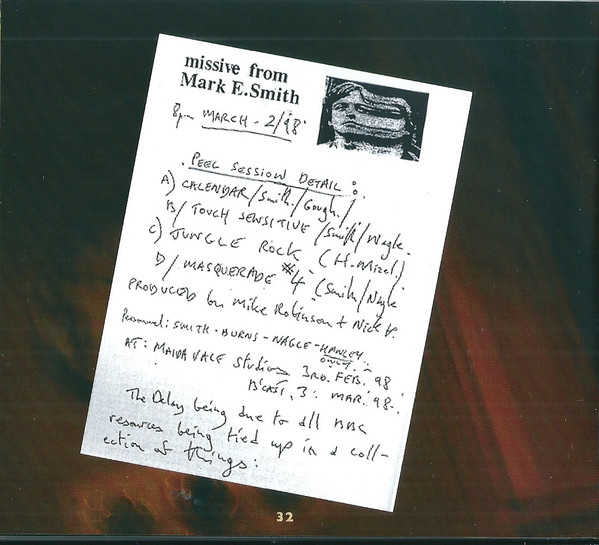 missive from
Mark E.Smith
8pm MARCH - 2/98'
. PEEL SESSION DETAIL :
A) CALENDAR/Smith/Gough/.
B/ TOUCH SENSITIVE /Smith/Nagle.
C) JUNGLE ROCK (H. Mizel).
D/ MASQUERADE #4 (Smith/Nagle
PRODUCED by Mike Robinson + Nick
Personnel: SMITH - BURNS - NAGLE - HANLEY
ONLY.
AT: MAIDA VALE Studios 3RD. FEB. '98
B'CAST, 3. MAR. '98.
The Delay being due to all BBC
resources being tied up in a coll-
ection of things:
32